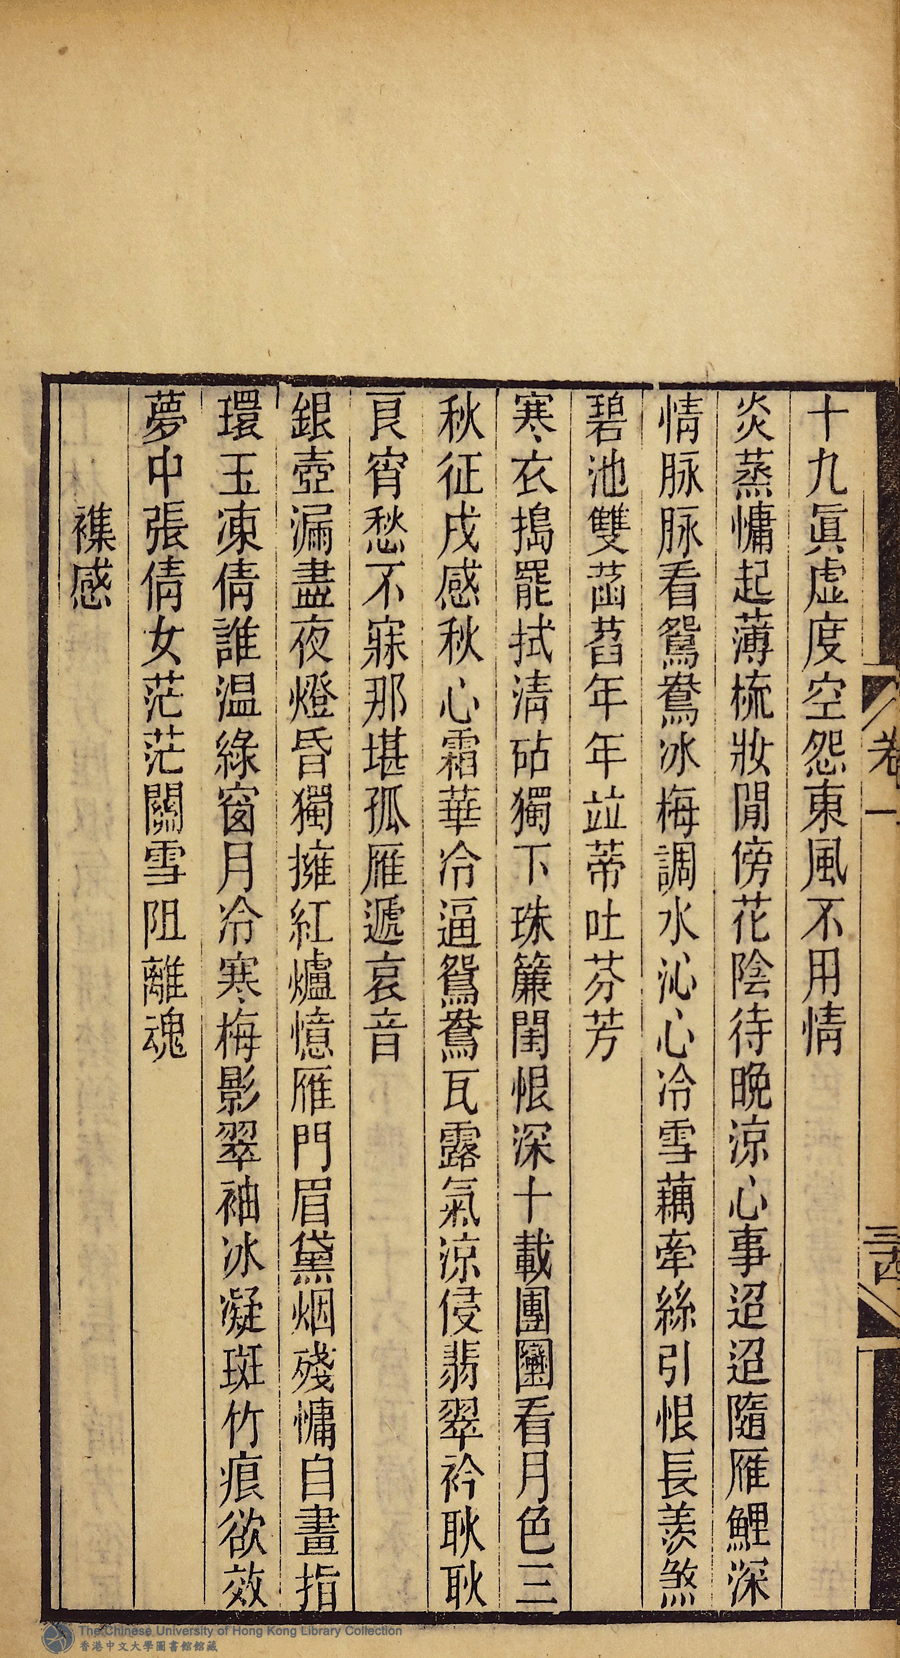 十九眞虛度空怨東風不用情
炎蒸慵起薄梳妝閒傍花陰待晚涼心事迢迢隨雁鯉深
情脉脉看鴛鴦冰梅調水沁心冷雪藕牽絲引恨長羡煞
碧池雙菡萏年年竝蒂吐芬芳
寒衣搗罷拭淸砧獨下珠簾閨恨深十載團圞看月色三
秋征戍感秋心霜華冷逼鴛鴦瓦露氣涼侵翡翠衿耿耿
良宵愁不寐那堪孤雁遞哀音
銀壺漏盡夜燈昏獨擁紅爐憶雁門眉黛烟殘慵自畫指
環玉凍倩誰温綠窗月冷寒梅影翠袖冰凝斑竹痕欲效
夢中張倩女茫茫關雪阻離魂
襍感
卷一
三四
The Chinese University of Hong Kong Library Collection
香港中文大學圖書館館藏